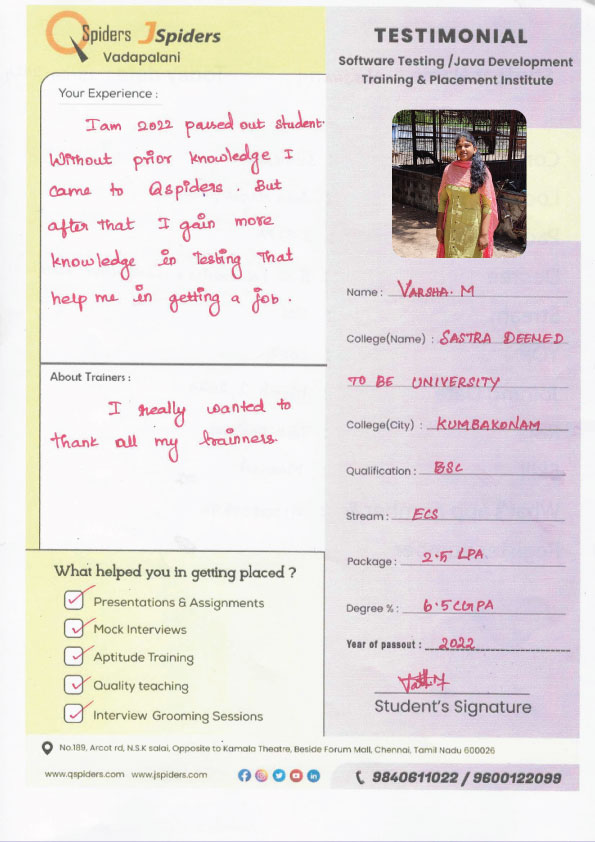 QSpiders JSpiders
Vadapalani
Your Experience :
Iam 2022 passed out student.
Without prior knowledge I
came to Qspiders. But
after that I gain more
knowledge in testing that
help me in getting a job.
About Trainers :
I really wanted to
thank all my trainners.
What helped you in getting placed ?
Presentations & Assignments
Mock Interviews
Aptitude Training
Quality teaching
Interview Grooming Sessions
TESTIMONIAL
Software Testing /Java Development
Training & Placement Institute
Name : VARSHA. M
College(Name) : SASTRA DEEMED
TO BE UNIVERSITY
College(City) : KUMBAKONAM
Qualification : BSC
Stream : ECS
Package : 2.5 LPA
Degree % : 6.5 CGPA
Year of passout : 2022
Student's Signature
No.189, Arcot rd, N.S.K salai, Opposite to Kamala Theatre, Beside Forum Mall, Chennai, Tamil Nadu 600026
www.qspiders.com www.jspiders.com
9840611022 / 9600122099